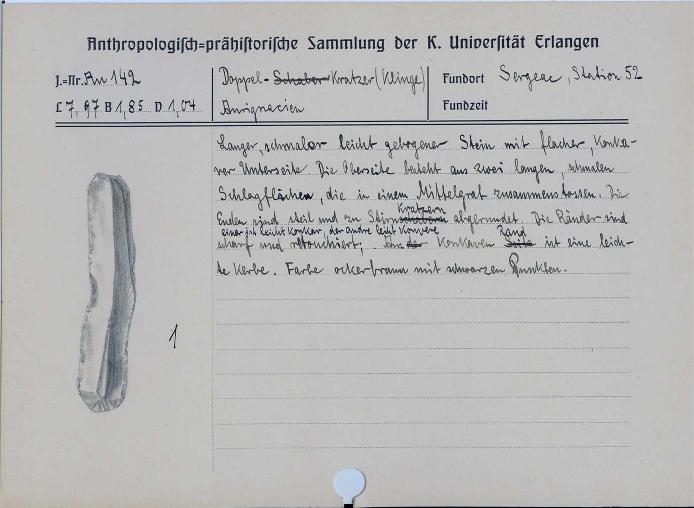 Anthropologisch=prähistorische Sammlung der K. Universität Erlangen
J.=Nr. Au 142
Doppel-Schaber Kratzer (Klinge)
Fundort Sergeac, Station 52
L 7,97 B 1,85 D 1,04
Aurignacien
Fundzeit
Langer, schmaler leicht gebogener Stein mit flacher, konka-
ver Unterseite. Die Oberseite besteht aus zwei langen, schmalen
Schlagflächen, die in einem Mittelgrat zusammenstossen. Die
Kratzern
Enden sind steil und zu Stirnschabern abgerundet. Die Ränder sind
einer ist leicht konkav, der andre leicht konvexe Rand
scharf und retouchiert, . Am der konkaven Seite ist eine leich-
te Kerbe. Farbe ockerbraun mit schwarzen Punkten.
1